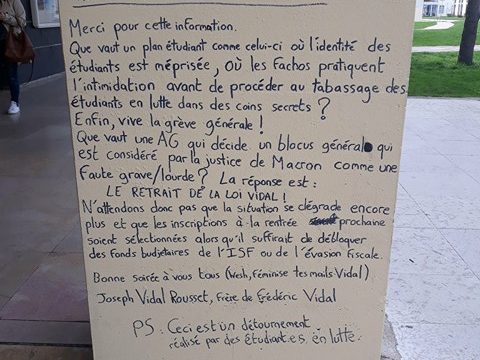 Merci pour cette information.
Que vaut un plan étudiant comme celui-ci où l'identité des
étudiants est méprisée, où les fachos pratiquent
l'intimidation avant de procéder au tabassage des
étudiants en lutte dans des coins secrets ?
Enfin, vive la grève générale !
Que vaut une AG qui décide un blocus général qui
est considéré par la justice de Macron comme une
faute grave/lourde ? La réponse est :
LE RETRAIT DE LA LOI VIDAL !
N'attendons donc pas que la situation se dégrade encore
plus et que les inscriptions à la rentrée prochaine
soient sélectionnées alors qu'il suffirait de débloquer
des fonds budgétaires de l'ISF ou de l'évasion fiscale.
Bonne soirée à vous tous (Wesh, féminise tes mails Vidal)
Joseph Vidal Rousset, frère de Frédéric Vidal
PS : Ceci est un détournement
réalisé par des étudiant.e.s. en lutte.